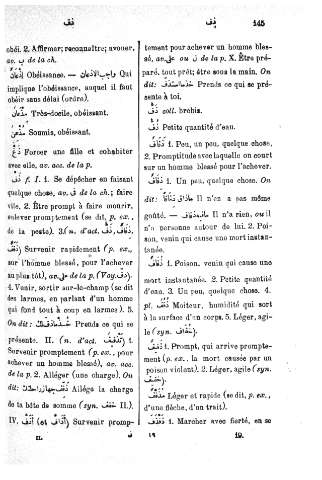 ذف
ذف
145
obéi. 2. Affirmer; reconnaître; avouer,
ac. ب de la ch.
إذعان Obéissance. — واجب الاذعان Qui
implique l'obéissance, auquel il faut
obéir sans délai (ordre).
مذعان Très-docile, obéissant.
مذعن Soumis, obéissant.
Forcer une fille et cohabiter
avec elle, av. acc. de la p.
ذف f. I. 1. Se dépêcher en faisant
quelque chose, av. في de lo ch.; faire
vite. 2. Être prompt à faire mourir,
enlever promptement (se dit, p. ex.,
de la peste). 3. (n. d'act. ذف, ذفاف)
Survenir rapidement (p. ex.,
sur l'homme blessé, pour l'achever
au plus tôt), av. على de la p. (Voy. دف)
4. Venir, sortir sur-le-champ (se dit
des larmes, en parlant d'un homme
qui fond tout à coup en larmes). 5.
On dit: خذ ما ذف لك Prends ce qui se
présente. II. (n. d'act. تذفيف) 1.
Survenir promptement (p. ex., pour
achever un homme blessé), av. acc.
de la p. 2. Alléger (une charge). On
dit: ذفف جهاز راحلتك Allége la charge
de ta bête de somme (syn. خفف II.).
IV. أذف (et أذاف) Survenir promp-
II.
tement pour achever un homme bles-
sé, av. على ou ل de la p. X. Être pré-
paré, tout prêt; être sous la main. On
dit: خذ ما استذف Prends ce qui se pré-
sente à toi.
ذف coll. brebis.
ذف Petite quantité d'eau.
ذفاف 1. Peu, un peu, quelque chose.
2. Promptitude avec laquelle on court
sur un homme blessé pour l'achever.
ذفاف 1. Un peu, quelque chose. On
dit: ما ذاق ذفافا Il n'en a pas même
goûté. — ما فيه ذفاف Il n'a rien, ou il
n'a personne autour de lui. 2. Poi-
son, venin qui cause une mort instan-
tanée.
ذفاف 1. Poison, venin qui cause une
mort instantanée. 2. Petite quantité
d'eau. 3. Un peu, quelque chose. 4.
pl. ذفف Moiteur, humidité qui sort
à la surface d'un corps. 5. Léger, agi-
le (syn. خفاف).
ذفيف 1. Prompt, qui arrive prompte-
ment (p. ex., la mort causée par un
poison violent). 2. Léger, agile (syn.
خفيف).
مذفف Léger et rapide (se dit, p. ex.,
d'une flèche, d'un trait).
1. Marcher avec fierté, en se
19
19.